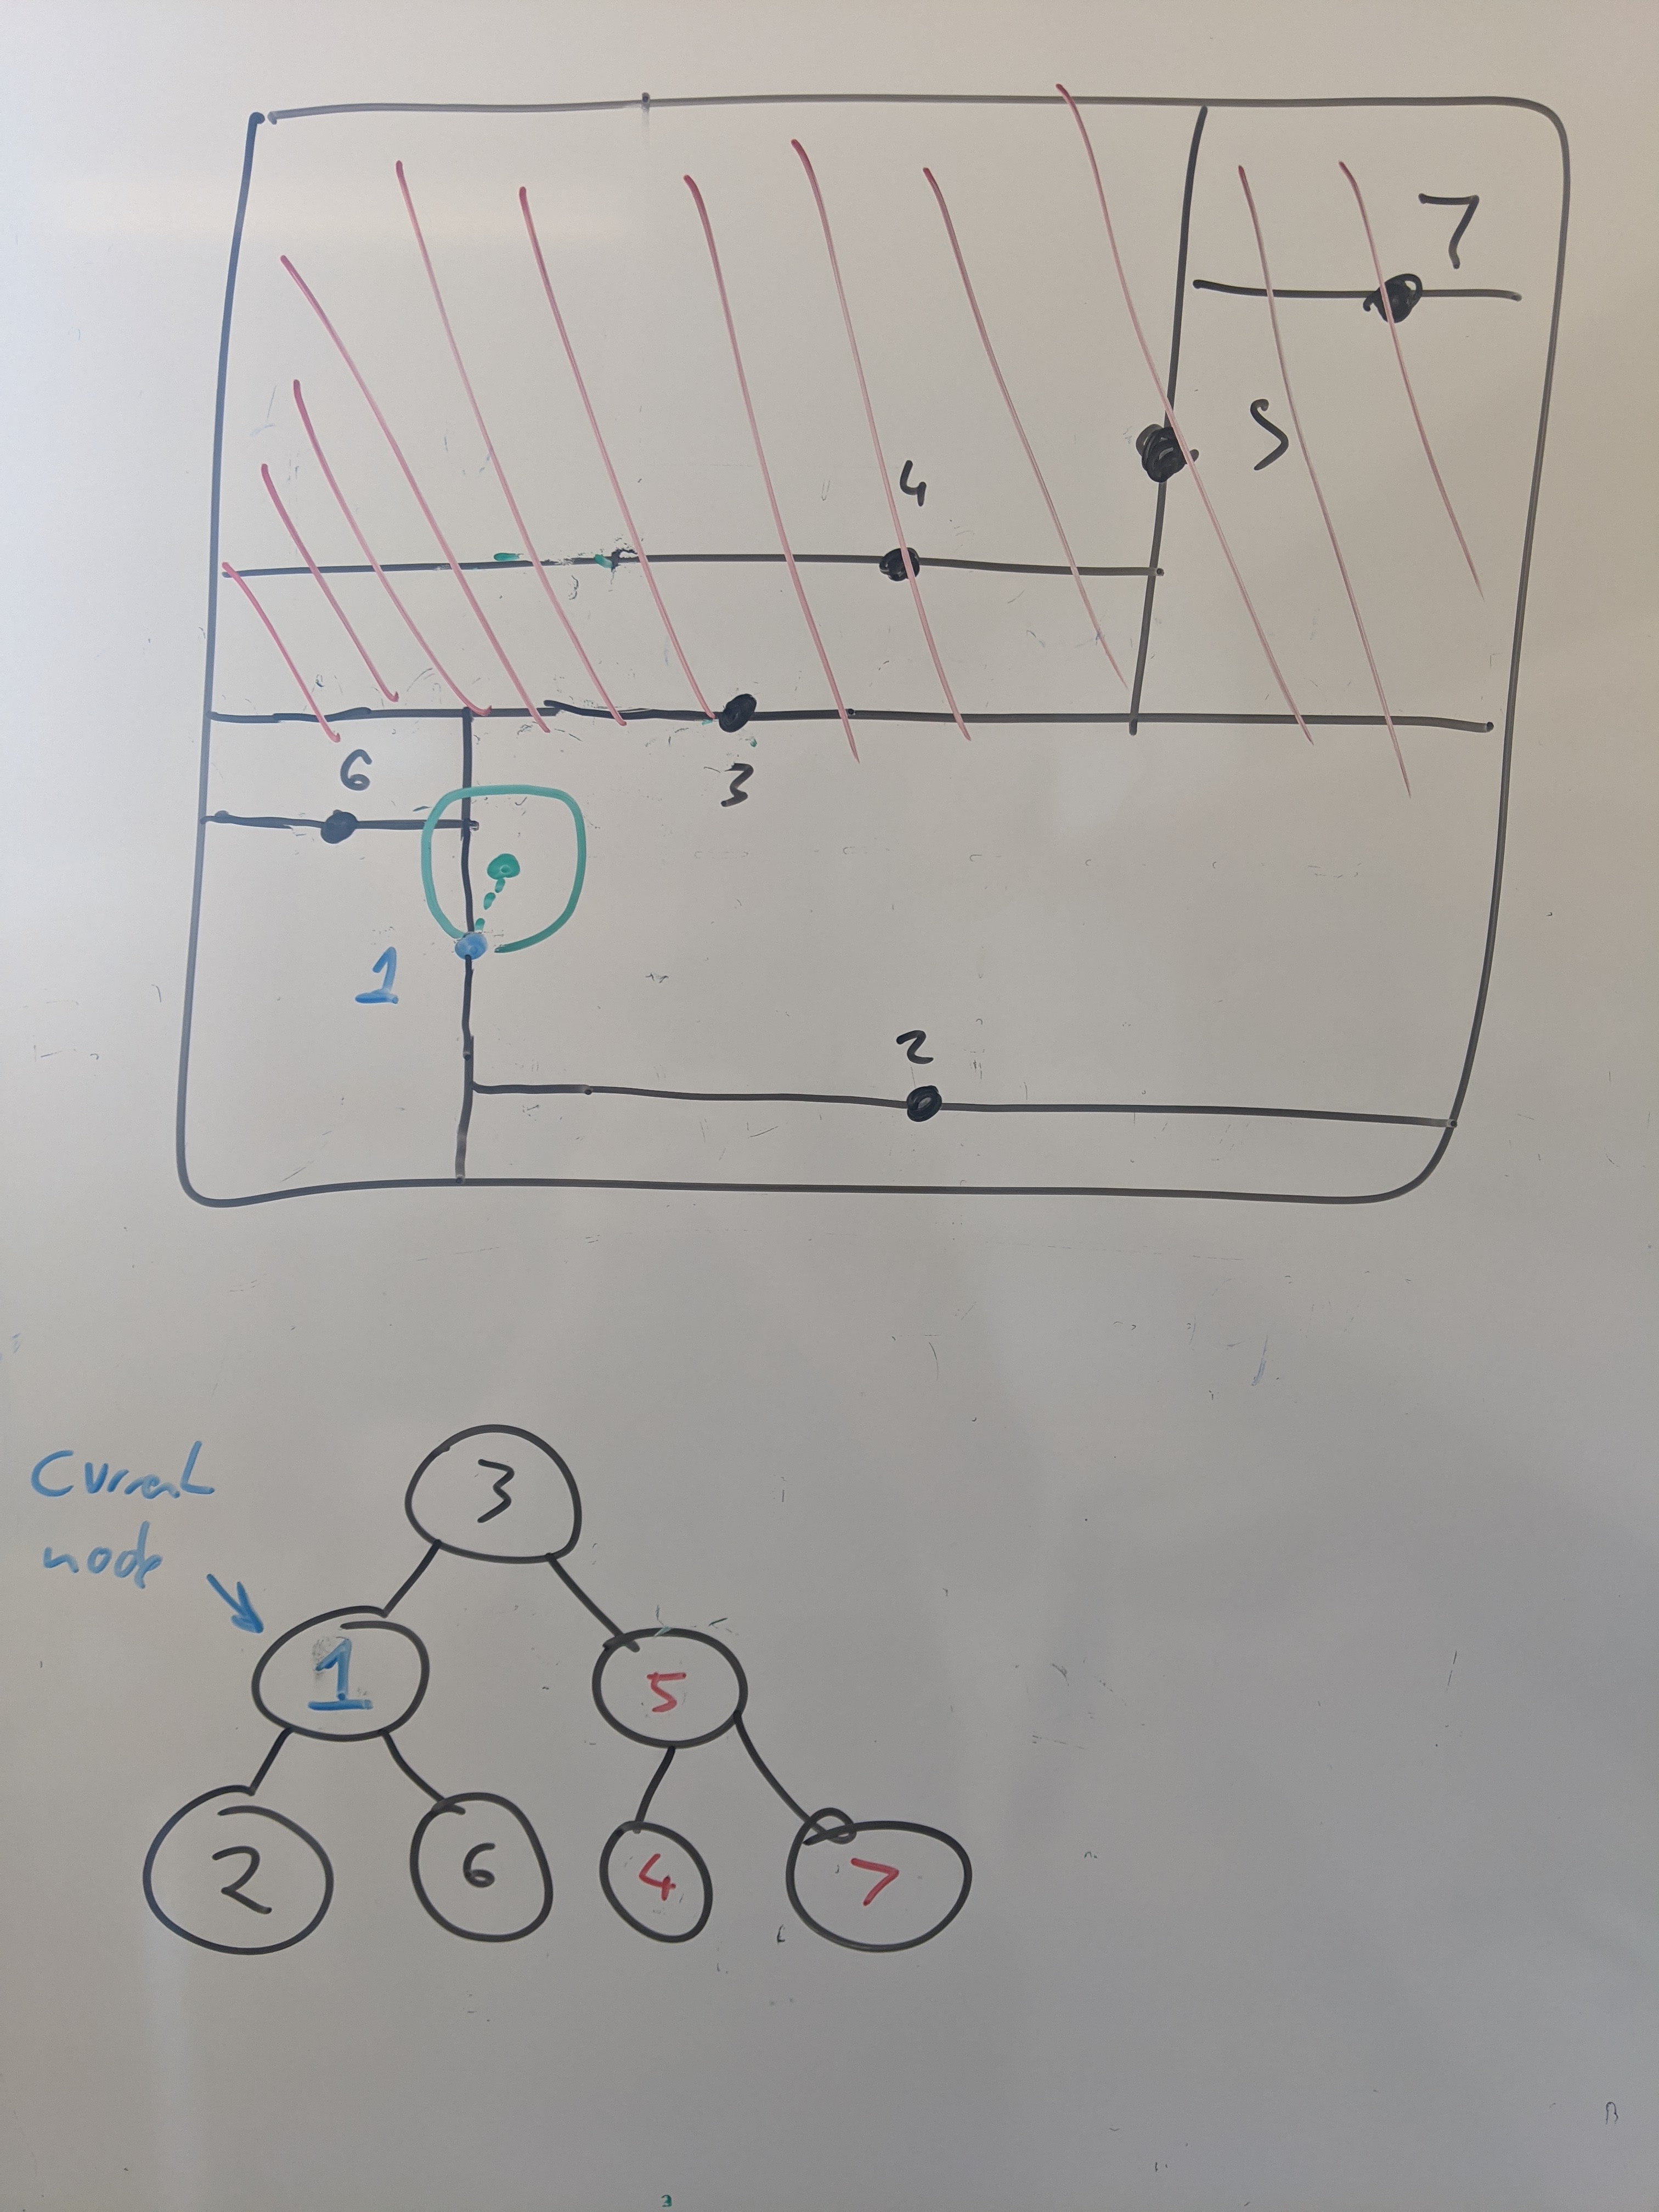 7
5
4
6
3
1
2
3
Current
node
1
5
2
6
4
7